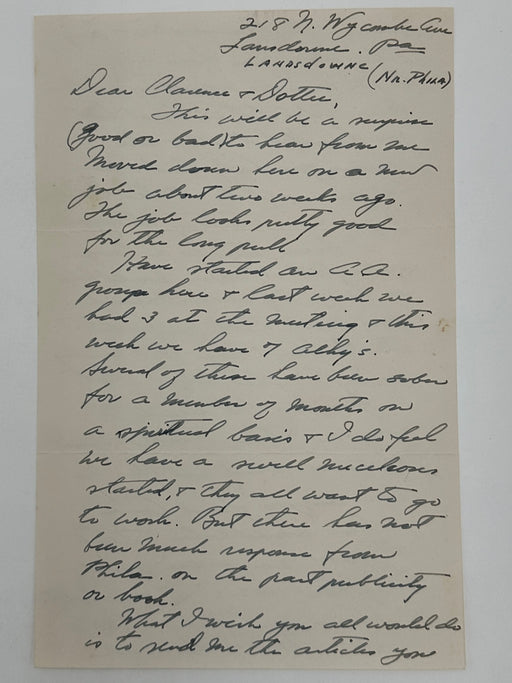 218 N. Wycombe Ave
Lansdowne. Pa
LANDSDOWNE (Nr. PHILA)
Dear Clarence & Dottie,
This will be a surprise
(good or bad) to hear from me
Moved down here on a new
job about two weeks ago.
The job looks pretty good
for the long pull
Have started an A.A.
group here & last week we
had 3 at the meeting & this
week we have 7 Alky's.
Several of these have been sober
for a number of months on
a spiritual basis & I do feel
we have a swell nucleous
started, & they all want to go
to work. But there has not
been much response from
Phila. on the past publicity
or book.
What I wish you all would do
is to send me the articles you